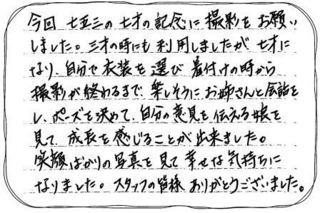 今回 七五三の七才の記念に撮影をお願い
しました。三才の時にも利用しましたが七才に
なり、自分で衣装を選び 着付けの時から
撮影が終わるまで、楽しそうにお姉さんと会話を
し、ポーズを決めて、自分の意見を伝える娘を
見て、成長を感じることが出来ました。
笑顔ばかりの写真を見て幸せな気持ちに
なりました。スタッフの皆様 ありがとうございました。